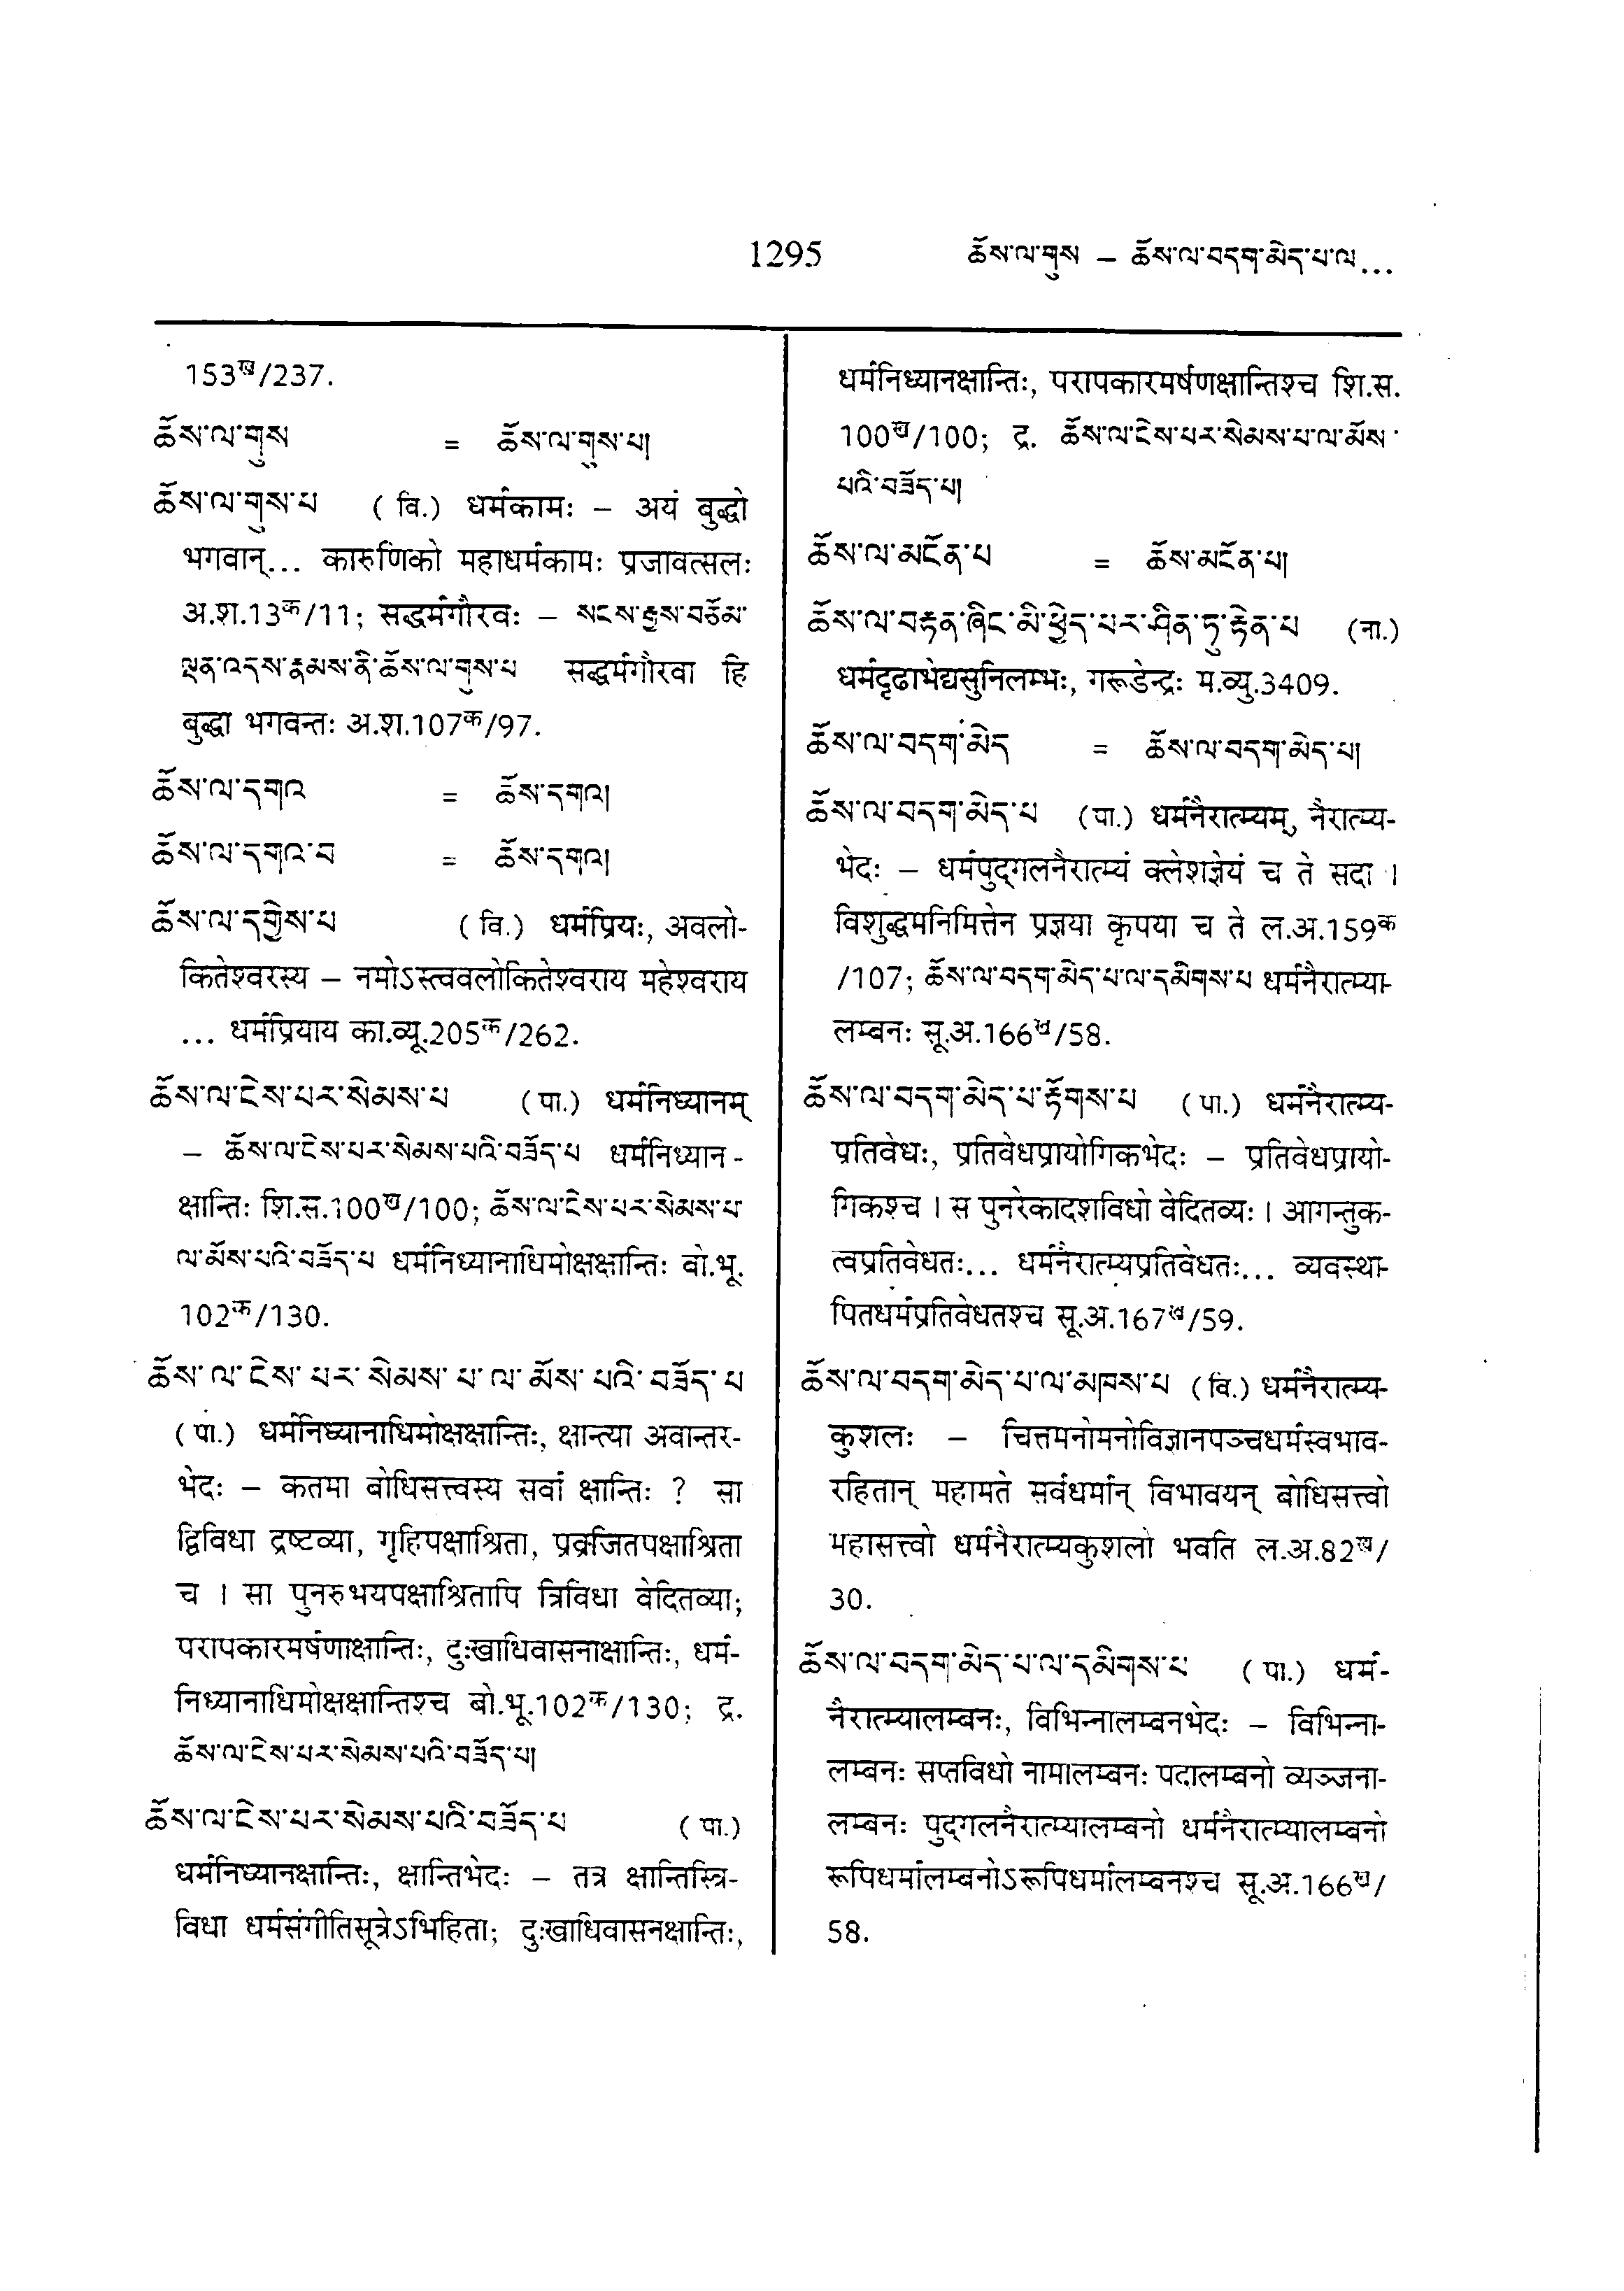 1295 ཆོས་ལ་གུས – ཆོས་ལ་བདག་མེད་པ་ལ...
153ख/237.
ཆོས་ལ་གུས = ཆོས་ལ་གུས་པ།
ཆོས་ལ་གུས་པ (वि.) धर्मकामः – अयं बुद्धो
भगवान्... कारुणिको महाधर्मकामः प्रजावत्सलः
अ.श.13क/11; सद्धर्मगौरवः – སངས་རྒྱས་བཅོམ་
ལྡན་འདས་རྣམས་ནི་ཆོས་ལ་གུས་པ सद्धर्मगौरवा हि
बुद्धा भगवन्तः अ.श.107क/97.
ཆོས་ལ་དགའ = ཆོས་དགའ།
ཆོས་ལ་དགའ་བ = ཆོས་དགའ།
ཆོས་ལ་དགྱེས་པ (वि.) धर्मप्रियः, अवलो-
कितेश्वरस्य – नमोऽस्त्ववलोकितेश्वराय महेश्वराय
... धर्मप्रियाय का.व्यू.205क/262.
ཆོས་ལ་ངེས་པར་སེམས་པ (पा.) धर्मनिध्यानम्
– ཆོས་ལ་ངེས་པར་སེམས་པའི་བཟོད་པ धर्मनिध्यान-
क्षान्तिः शि.स.100ख/100; ཆོས་ལ་ངེས་པར་སེམས་པ་
ལ་མོས་པའི་བཟོད་པ धर्मनिध्यानाधिमोक्षक्षान्तिः बो.भू.
102क/130.
ཆོས་ལ་ངེས་པར་སེམས་པ་ལ་མོས་པའི་བཟོད་པ
(पा.) धर्मनिध्यानाधिमोक्षक्षान्तिः, क्षान्त्या अवान्तर-
भेदः – कतमा बोधिसत्त्वस्य सर्वा क्षान्तिः ? सा
द्विविधा द्रष्टव्या, गृहिपक्षाश्रिता, प्रव्रजितपक्षाश्रिता
च । सा पुनरुभयपक्षाश्रितापि त्रिविधा वेदितव्या;
परापकारमर्षणाक्षान्तिः, दुःखाधिवासनाक्षान्तिः, धर्म-
निध्यानाधिमोक्षक्षान्तिश्च बो.भू.102क/130; द्र.
ཆོས་ལ་ངེས་པར་སེམས་པའི་བཟོད་པ།
ཆོས་ལ་ངེས་པར་སེམས་པའི་བཟོད་པ (पा.)
धर्मनिध्यानक्षान्तिः, क्षान्तिभेदः – तत्र क्षान्तिस्त्रि-
विधा धर्मसंगीतिसूत्रेऽभिहिता; दुःखाधिवासनक्षान्तिः,
धर्मनिध्यानक्षान्तिः, परापकारमर्षणक्षान्तिश्च शि.स.
100ख/100; द्र. ཆོས་ལ་ངེས་པར་སེམས་པ་ལ་མོས་
པའི་བཟོད་པ།
ཆོས་ལ་མངོན་པ = ཆོས་མངོན་པ།
ཆོས་ལ་བརྟན་ཞིང་མི་ཕྱེད་པར་ཤིན་ཏུ་རྟེན་པ (ना.)
धर्मदृढाभेद्यसुनिलम्भः, गरूडेन्द्रः म.व्यु.3409.
ཆོས་ལ་བདག་མེད = ཆོས་ལ་བདག་མེད་པ།
ཆོས་ལ་བདག་མེད་པ (पा.) धर्मनैरात्म्यम्, नैरात्म्य-
भेदः – धर्मपुद्गलनैरात्म्यं क्लेशज्ञेयं च ते सदा ।
विशुद्धमनिमित्तेन प्रज्ञया कृपया च ते ल.अ.159क
/107; ཆོས་ལ་བདག་མེད་པ་ལ་དམིགས་པ धर्मनैरात्म्या-
लम्बनः सू.अ.166ख/58.
ཆོས་ལ་བདག་མེད་པ་རྟོགས་པ (पा.) धर्मनैरात्म्य-
प्रतिवेधः, प्रतिवेधप्रायोगिकभेदः – प्रतिवेधप्रायो-
गिकश्च । स पुनरेकादशविधो वेदितव्यः । आगन्तुक-
त्वप्रतिवेधतः... धर्मनैरात्म्यप्रतिवेधतः... व्यवस्था-
पितधर्मप्रतिवेधतश्च सू.अ.167ख/59.
ཆོས་ལ་བདག་མེད་པ་ལ་མཁས་པ (वि.) धर्मनैरात्म्य-
कुशलः – चित्तमनोमनोविज्ञानपञ्चधर्मस्वभाव-
रहितान् महामते सर्वधर्मान् विभावयन् बोधिसत्त्वो
महासत्त्वो धर्मनैरात्म्यकुशलो भवति ल.अ.82ख/
30.
ཆོས་ལ་བདག་མེད་པ་ལ་དམིགས་པ (पा.) धर्म-
नैरात्म्यालम्बनः, विभिन्नालम्बनभेदः – विभिन्ना-
लम्बनः सप्तविधो नामालम्बनः पदालम्बनो व्यञ्जना-
लम्बनः पुद्गलनैरात्म्यालम्बनो धर्मनैरात्म्यालम्बनो
रूपिधर्मालम्बनोऽरूपिधर्मालम्बनश्च सू.अ.166ख/
58.